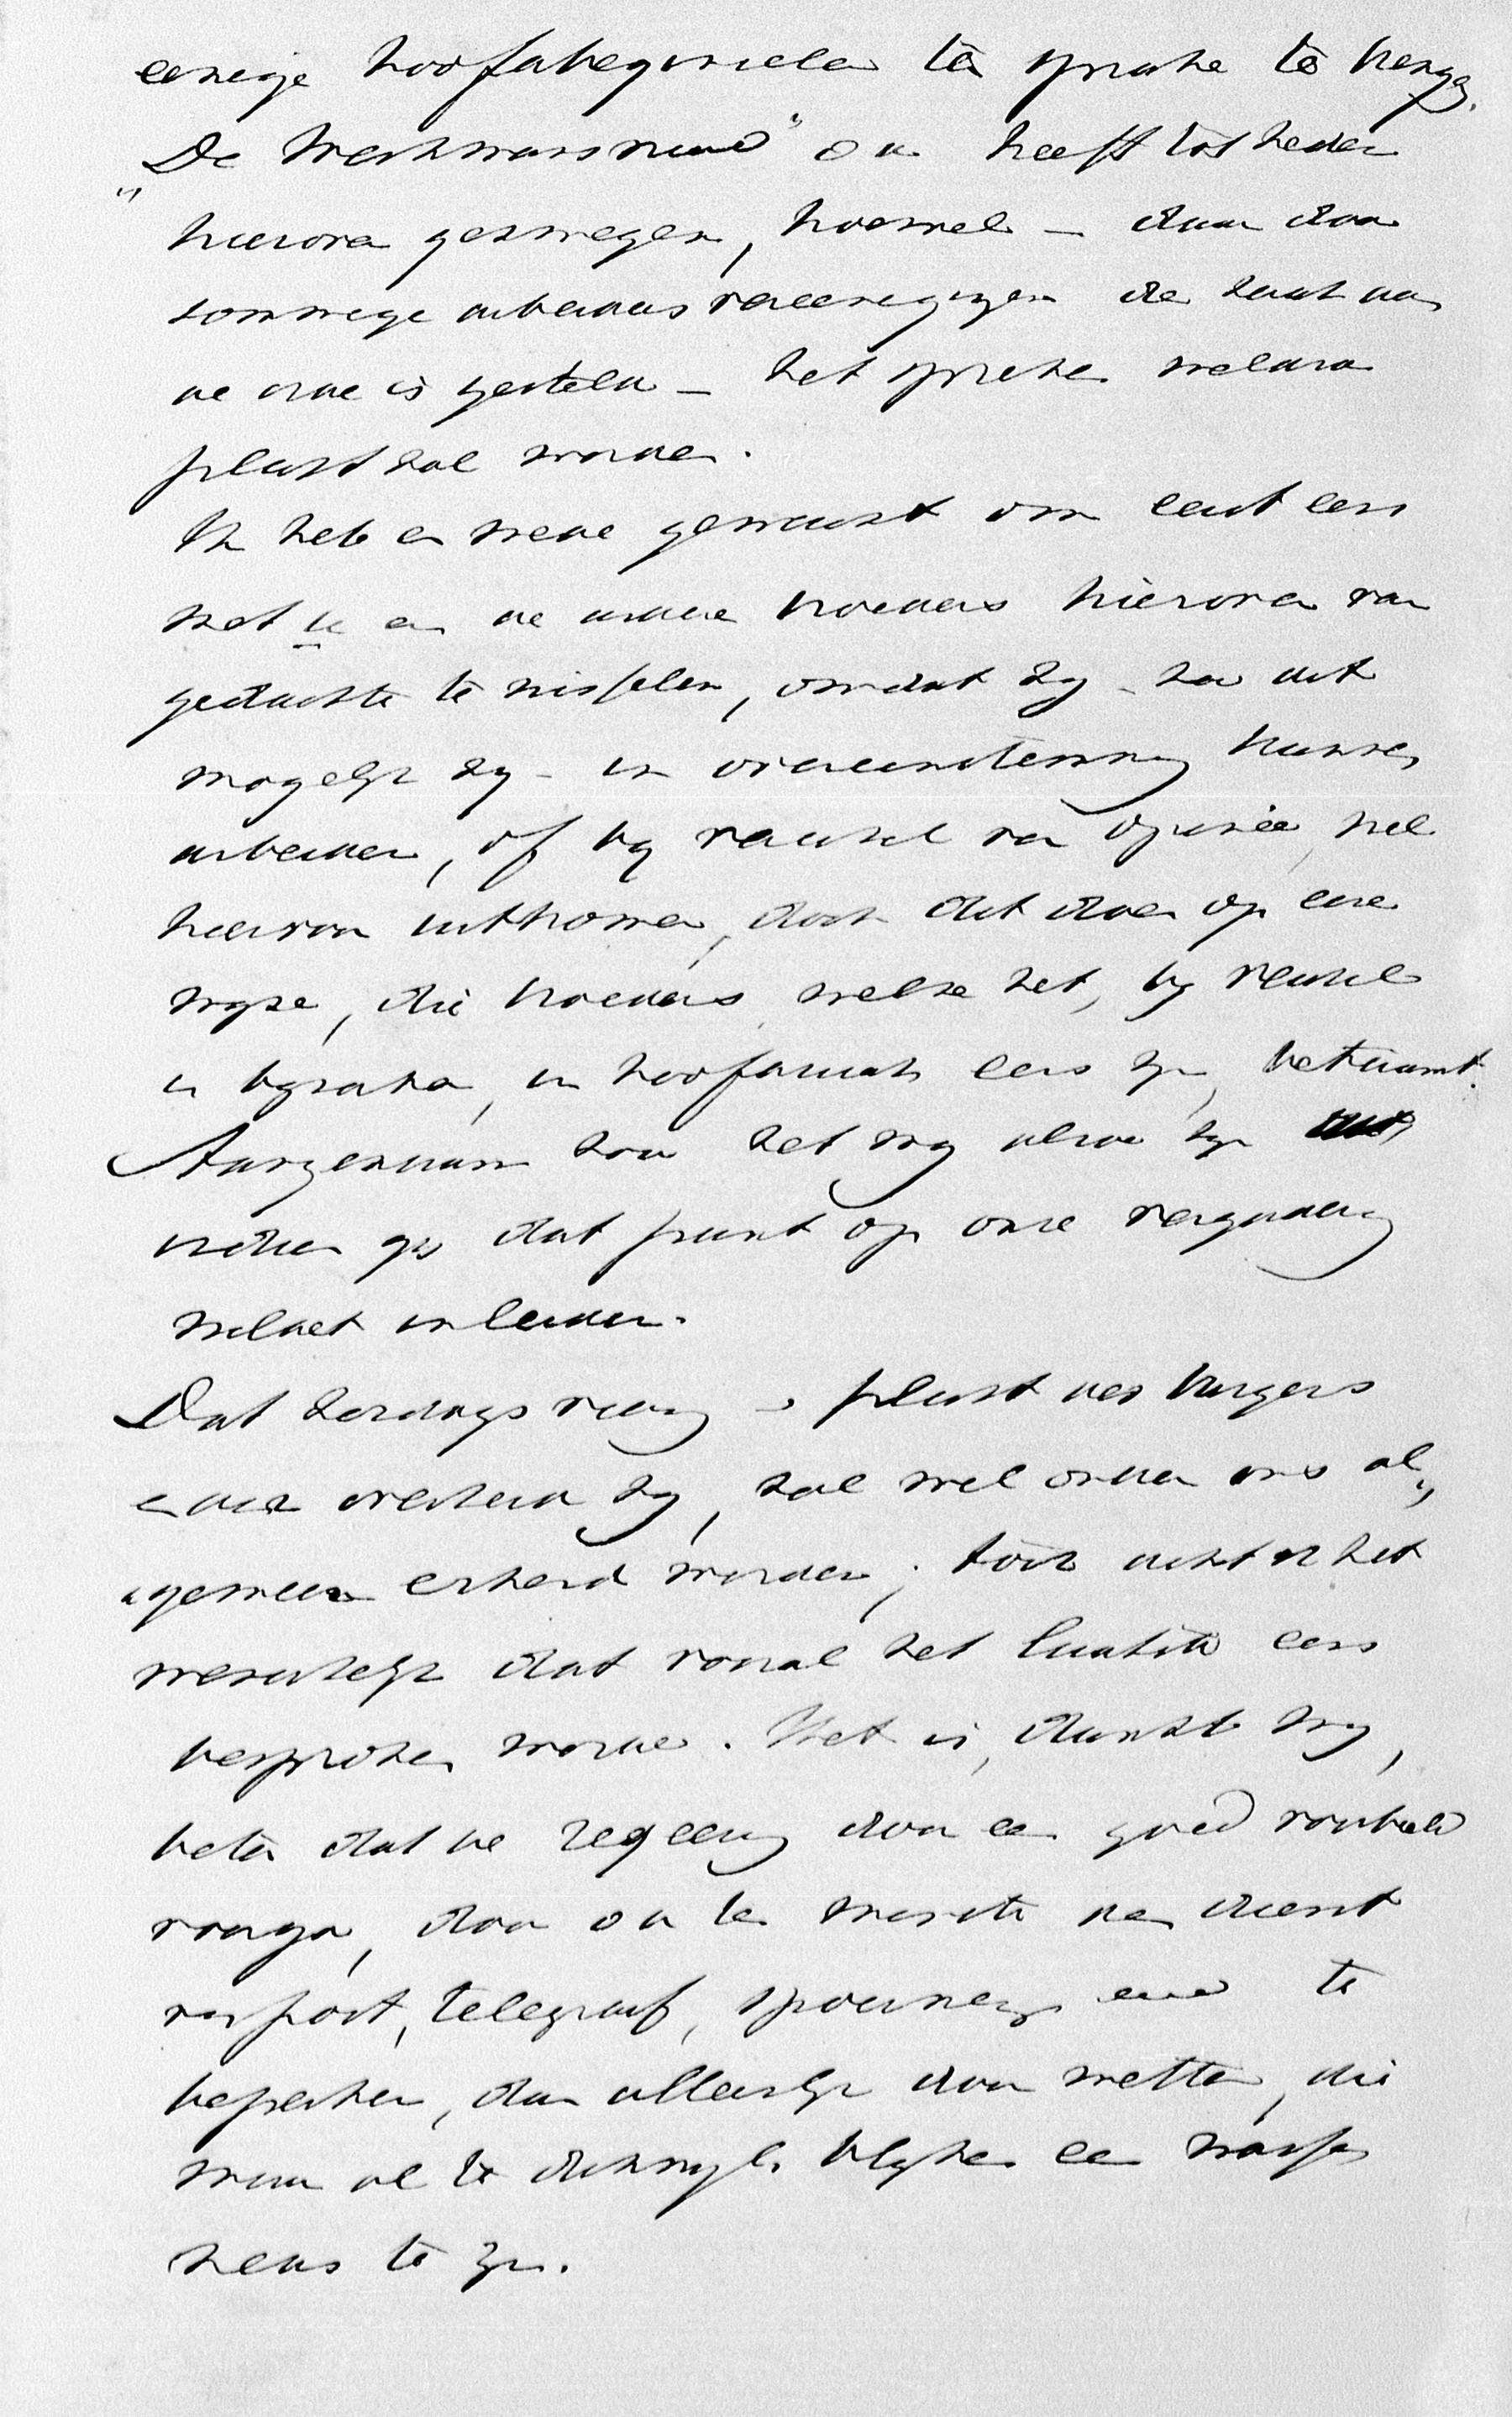 eenige hoofdbeginselen ter sprake te brengen.
"De Werkmansvriend" o.a. heeft tot heden
hierover gezwegen, hoewel – daar door
sommige arbeidersvereenigingen de zaak aan
de orde is gesteld – het spreken weldra
plicht zal worden.
Ik heb er mede gewacht om eerst eens
met u en de andere broeders hierover van
gedachte te wisselen, omdat zy – zoo dit
mogelyk zy – in overeenstemming kunnen
arbeiden, of by verschil van opinie, wel
hiervoor uitkomen, doch dit doen op eene
wyze, die broeders, welke het, by verschil
in byzaken, in hoofdzaak eens zyn, betaamt.
Aangenaam zou het my alzoo zyn
indien gy dat punt op onze vergadering
wildet inleiden.
Dat zondagsviering – plicht des burgers
en der overheid zy, zal wel onder ons al„
„gemeen erkend worden; toch acht ik het
wenschelyk dat vooral het laatste eens
besproken worde. Het is, dunkt my,
beter dat de regeering door een goed voorbeeld
voorga, door o.a. ten minste den dienst
van post, telegraaf, spoorwegen enz. te
beperken, dan alleenlyk door wetten, die
maar al te dikwyls blyken een wassen
neus te zyn.